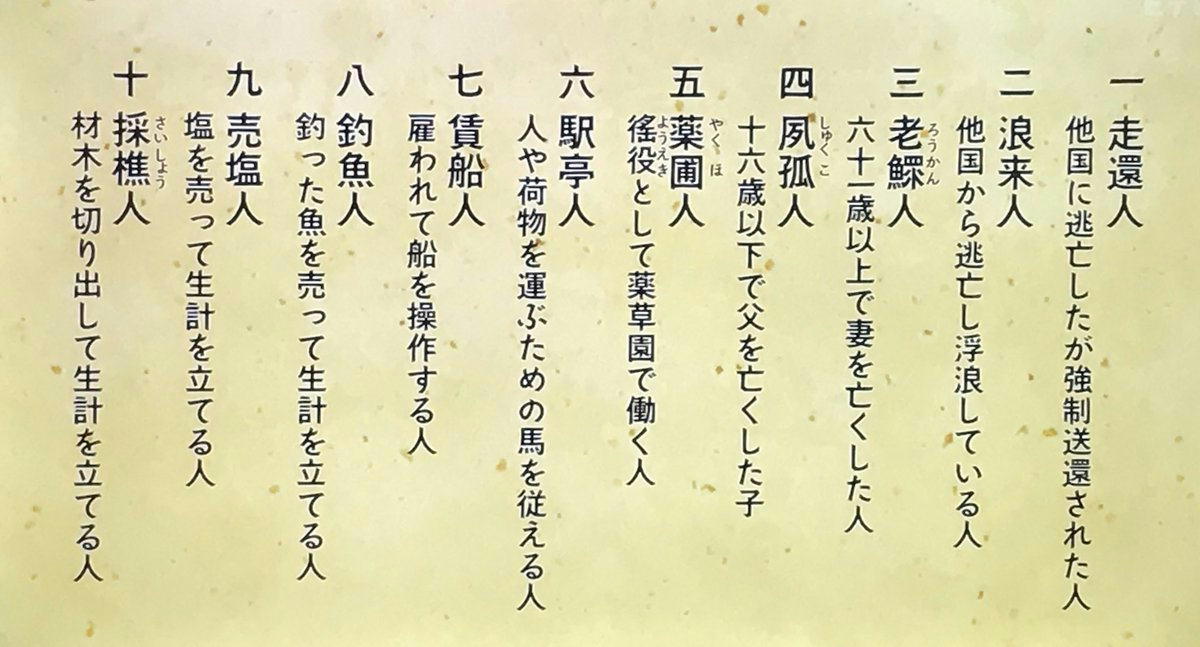 一 走還人
他国に逃亡したが強制送還された人
二 浪来人
他国から逃亡し浮浪している人
三 老鰥人
ろうかん
六十一歳以上で妻を亡くした人
四 夙孤人
しゅくこ
十六歳以下で父を亡くした子
五 薬圃人
やくほ
徭役として薬草園で働く人
ようえき
六 駅亭人
人や荷物を運ぶための馬を従える人
七 賃船人
雇われて船を操作する人
八 釣魚人
釣った魚を売って生計を立てる人
九 売塩人
塩を売って生計を立てる人
十 採樵人
さいしょう
材木を切り出して生計を立てる人